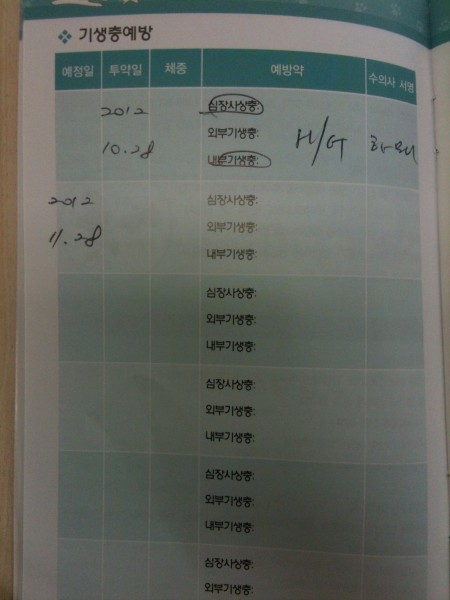 ❖ 기생충예방
예정일 투약일 체중 예방약 수의사 서명
2012 심장사상충:
외부기생충:
10.28 H/G
내부기생충:
2012 심장사상충:
외부기생충:
11.28
내부기생충:
심장사상충:
외부기생충:
내부기생충:
심장사상충:
외부기생충:
내부기생충:
심장사상충:
외부기생충:
내부기생충:
심장사상충:
외부기생충: